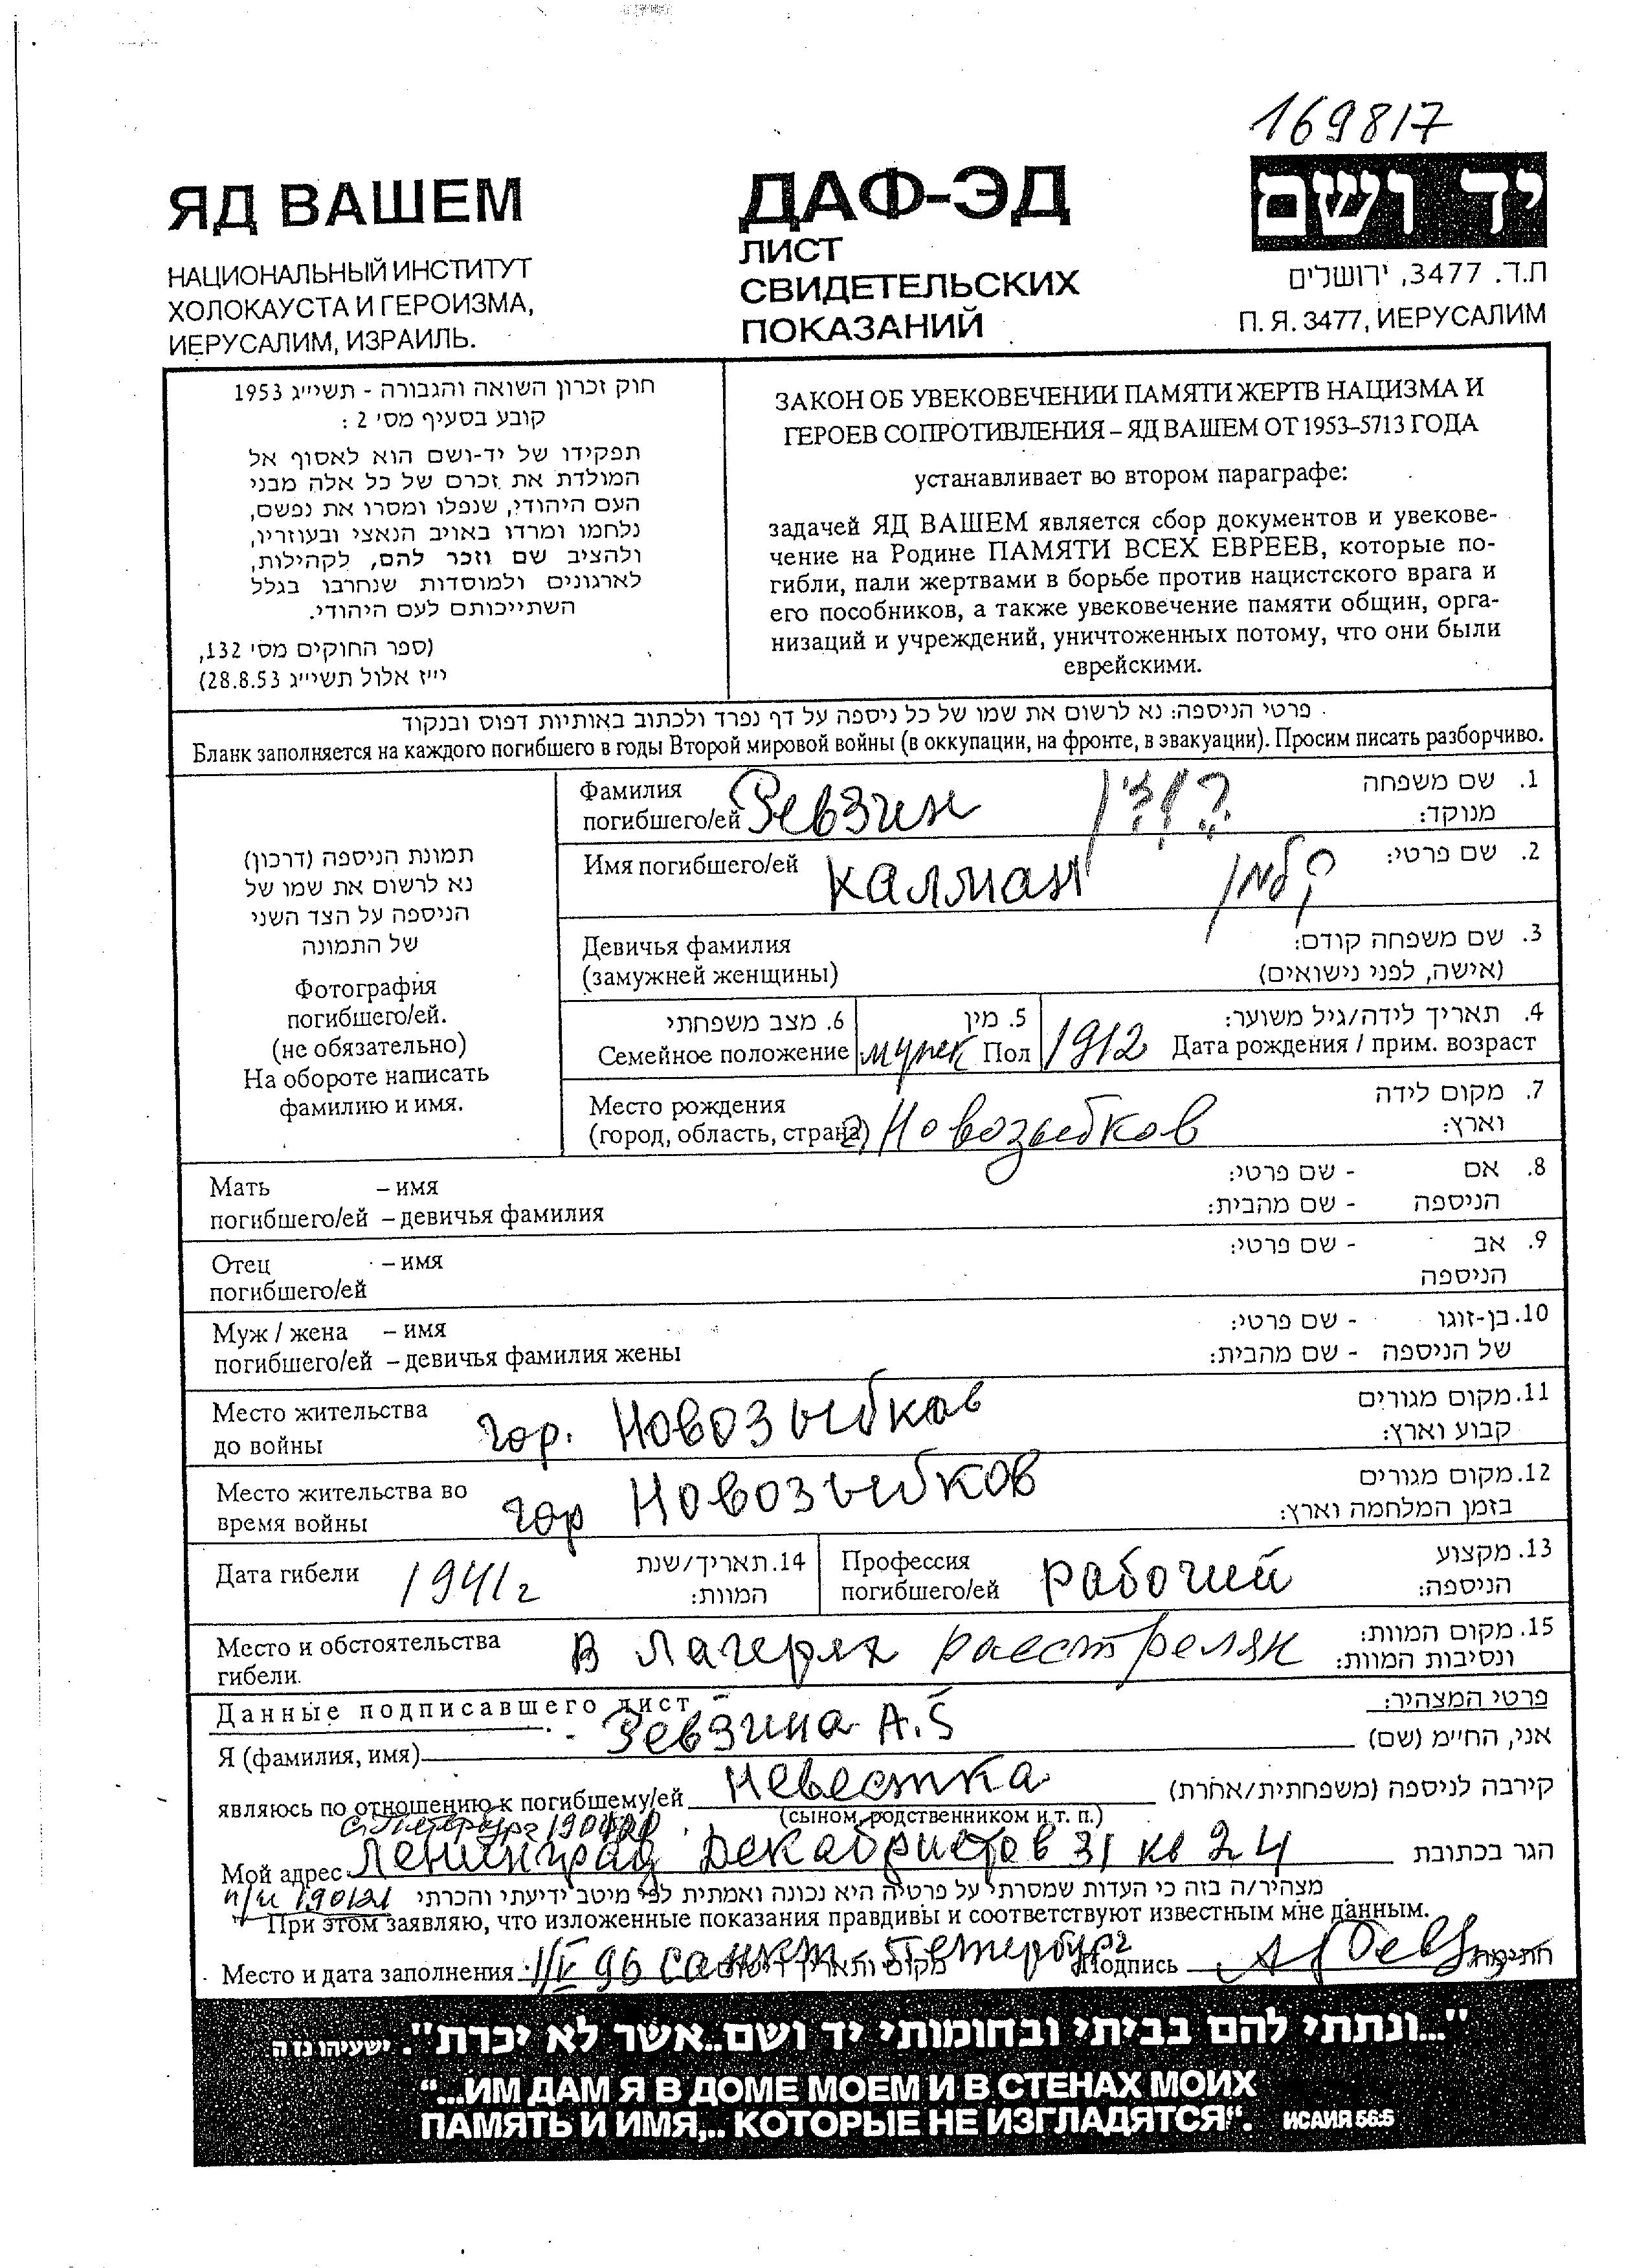 169817
ЯД ВАШЕМ
НАЦИОНАЛЬНЫЙ ИНСТИТУТ
ХОЛОКАУСТА И ГЕРОИЗМА,
ИЕРУСАЛИМ, ИЗРАИЛЬ.
ДАФ-ЭД
ЛИСТ
СВИДЕТЕЛЬСКИХ
ПОКАЗАНИЙ
יד ושם
ת.ד. 3477, ירושלים
П. Я. 3477, ИЕРУСАЛИМ
חוק זכרון השואה והגבורה - תשי״ג 1953
קובע בסעיף מס׳ 2 :
תפקידו של יד-ושם הוא לאסוף אל
המולדת את זכרם של כל אלה מבני
העם היהודי, שנפלו ומסרו את נפשם,
נלחמו ומרדו באויב הנאצי ובעוזריו,
ולהציב שם וזכר להם, לקהילות,
לארגונים ולמוסדות שנחרבו בגלל
השתייכותם לעם היהודי.
(ספר החוקים מס׳ 132,
י״ז אלול תשי״ג 28.8.53)
ЗАКОН ОБ УВЕКОВЕЧЕНИИ ПАМЯТИ ЖЕРТВ НАЦИЗМА И
ГЕРОЕВ СОПРОТИВЛЕНИЯ – ЯД ВАШЕМ ОТ 1953–5713 ГОДА
устанавливает во втором параграфе:
задачей ЯД ВАШЕМ является сбор документов и увекове-
чение на Родине ПАМЯТИ ВСЕХ ЕВРЕЕВ, которые по-
гибли, пали жертвами в борьбе против нацистского врага и
его пособников, а также увековечение памяти общин, орга-
низаций и учреждений, уничтоженных потому, что они были
еврейскими.
פרטי הניספה: נא לרשום את שמו של כל ניספה על דף נפרד ולכתוב באותיות דפוס ובנקוד
Бланк заполняется на каждого погибшего в годы Второй мировой войны (в оккупации, на фронте, в эвакуации). Просим писать разборчиво.
תמונת הניספה (דרכון)
נא לרשום את שמו של
הניספה על הצד השני
של התמונה
Фотография
погибшего/ей.
(не обязательно)
На обороте написать
фамилию и имя.
Фамилия погибшего/ей Ревзин 1. שם משפחה מנוקד:
Имя погибшего/ей Калман קלמן 2. שם פרטי:
Девичья фамилия 3. שם משפחה קודם:
(замужней женщины) (אישה, לפני נישואים)
6. מצב משפחתי 5. מין 4. תאריך לידה/גיל משוער:
Семейное положение муж Пол 1912 Дата рождения / прим. возраст
Место рождения 7. מקום לידה
(город, область, страна) г, Новозыбков וארץ:
Мать – имя 8. אם - שם פרטי:
погибшего/ей – девичья фамилия הניספה - שם מהבית:
Отец – имя 9. אב - שם פרטי:
погибшего/ей הניספה
Муж / жена – имя 10. בן-זוגו - שם פרטי:
погибшего/ей – девичья фамилия жены של הניספה - שם מהבית:
Место жительства 11. מקום מגורים
до войны гор. Новозыбков קבוע וארץ:
Место жительства во 12. מקום מגורים
время войны гор Новозыбков בזמן המלחמה וארץ:
Дата гибели 1941г 14. תאריך/שנת המוות:
Профессия погибшего/ей рабочий 13. מקצוע הניספה:
Место и обстоятельства 15. מקום המוות:
гибели. В лагерях расстрелян ונסיבות המוות:
Данные подписавшего лист פרטי המצהיר:
Я (фамилия, имя) Ревзина А.Б אני, החי״מ (שם)
являюсь по отношению к погибшему/ей невестка קירבה לניספה (משפחתית/אחרת)
(сыном, родственником и т. п.)
С. Петербург
Мой адрес Ленинград Декабристов 31 кв 24 הגר בכתובת
п/и 190121 מצהיר/ה בזה כי העדות שמסרתי על פרטיה היא נכונה ואמתית לפי מיטב ידיעתי והכרתי
При этом заявляю, что изложенные показания правдивы и соответствуют известным мне данным.
Место и дата заполнения 96 Санкт Петербург מקום ותאריך רישום Подпись חתימה
"...ונתתי להם בביתי ובחומותי יד ושם...אשר לא יכרת". ישעיהו נו ה
“...ИМ ДАМ Я В ДОМЕ МОЕМ И В СТЕНАХ МОИХ
ПАМЯТЬ И ИМЯ,.. КОТОРЫЕ НЕ ИЗГЛАДЯТСЯ“. ИСАИЯ 56:5